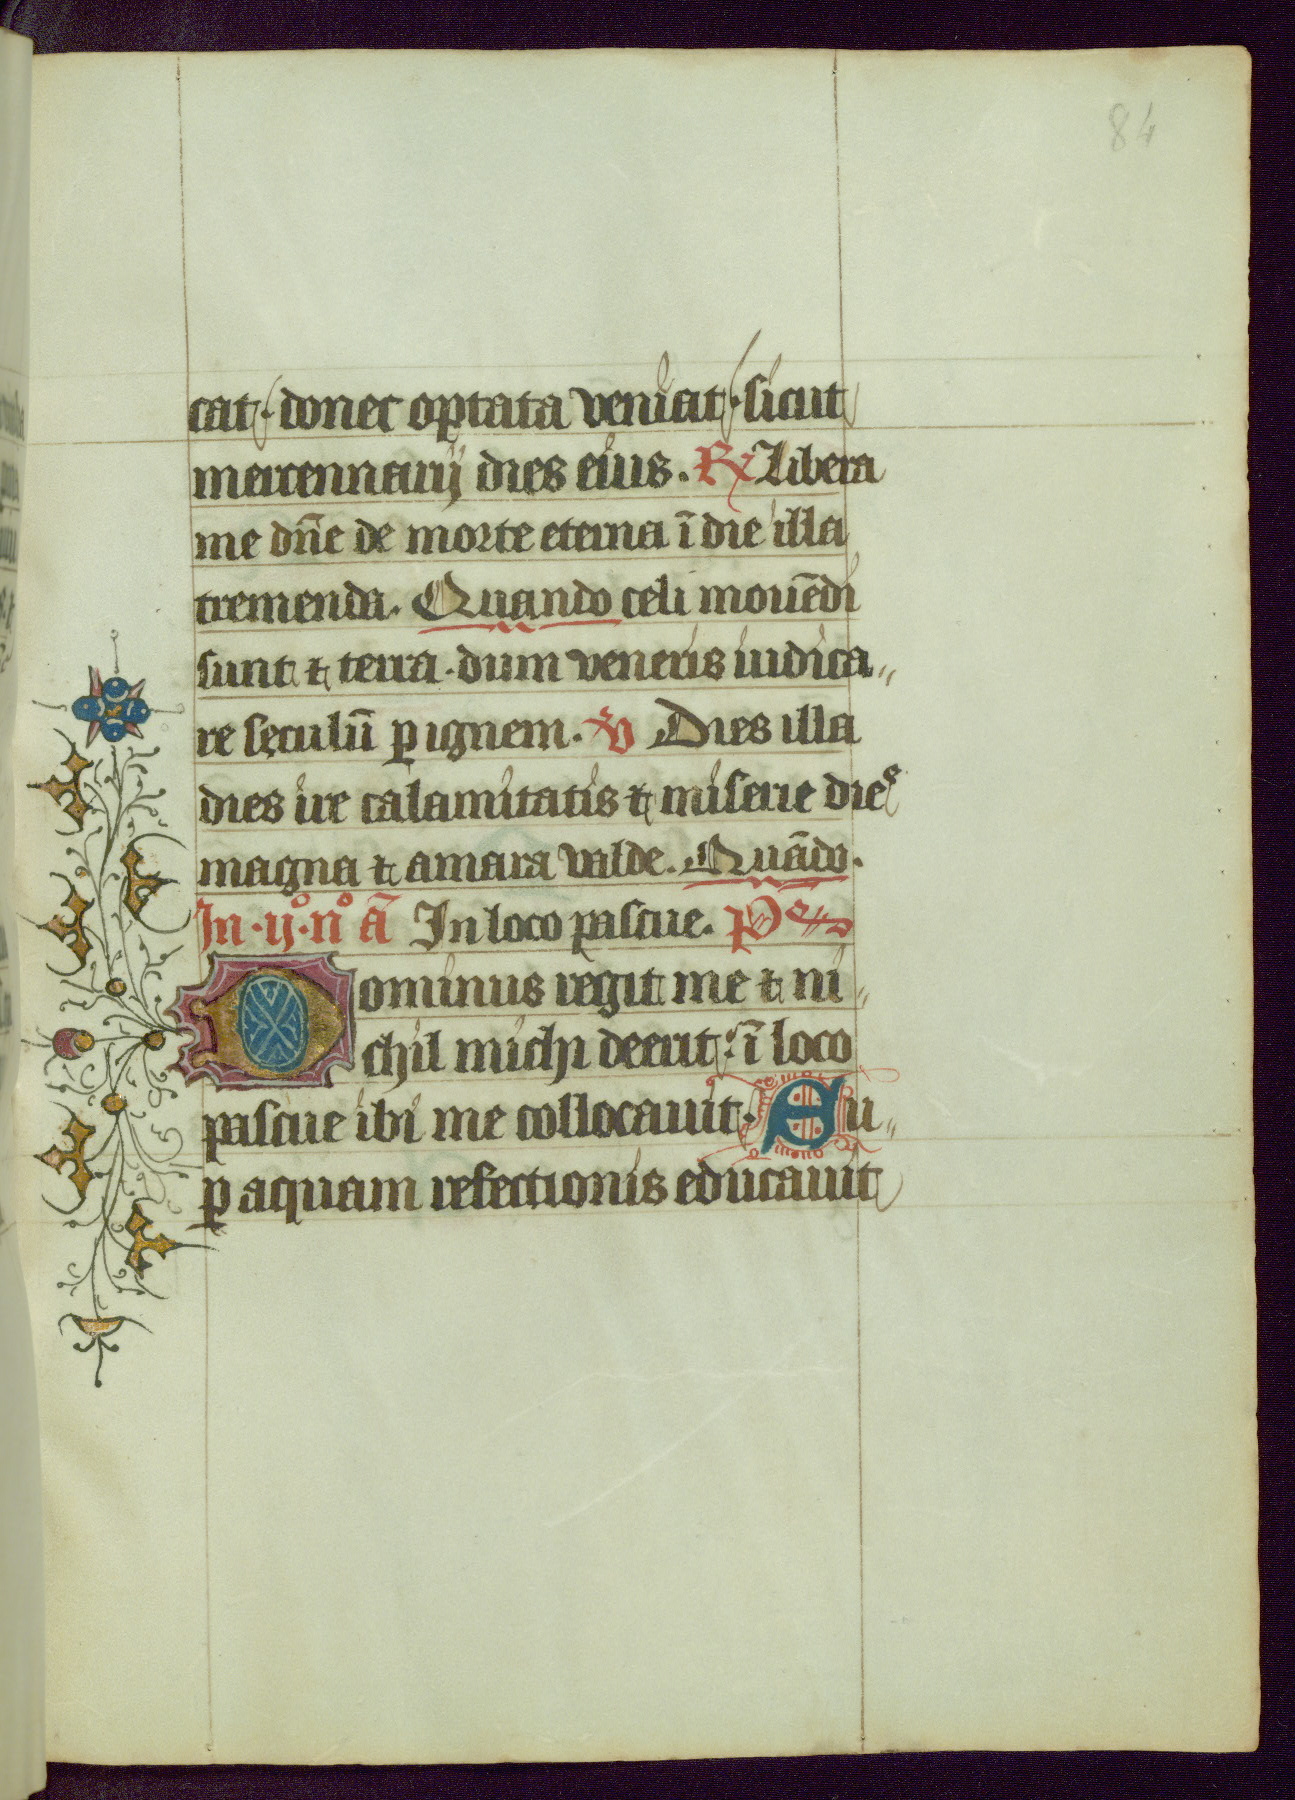 84
cat· donec optata veniat· sicut
mercennarij dies eius. ℟ Libera
me dn̄e de morte eterna ī die illa
tremenda. Quando celi mouēdi
sunt ⁊ terra· dum veneris iudica„
re sęculū ꝑ ignem. ℣ Dies illa
dies ire calamitatis ⁊ miserie dies
magna ⁊ amara valde. Quādo.
In ·ij°· n° ā In loco pascue. ps
Dominus regit me ⁊ ni„
chil michi deerit: ī loco
pascue ibi me collocauit. Su„
ꝑ aquam refectionis educauit